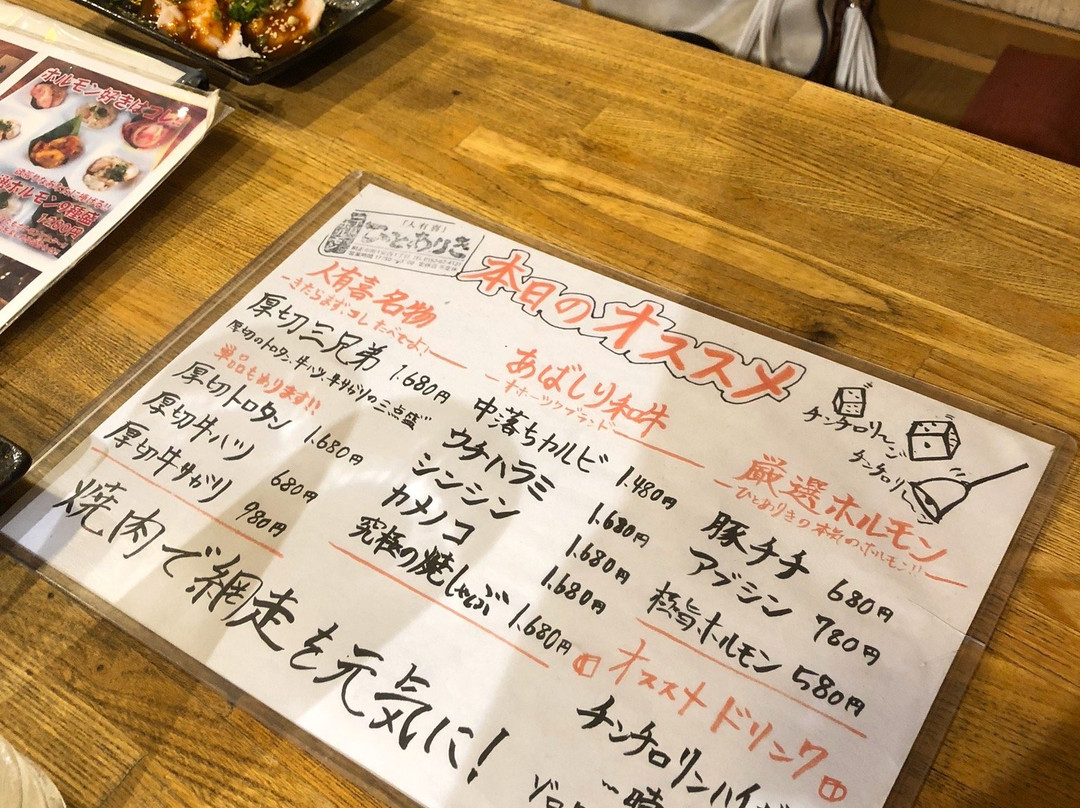 ホルモン好きはコレ
1280円
「人有喜」
ひとありき
本日のオススメ
人有喜名物
-きたらまず、コレたべてよ!-
厚切三兄弟 1.680円
厚切のトロタン、牛ハツ、牛サガリの三点盛
単品もあります!!
厚切トロタン 1.680円
厚切牛ハツ 680円
厚切牛サガリ 980円
あばしり和牛
-オホーツクブランド-
中落ちカルビ 1.480円
ウチハラミ 1.680円
シンシン 1.680円
カメノコ 1.680円
究極の焼しゃぶ 1.680円
チンチロリ〜ン
チンチロリ〜
厳選ホルモン
-ひとありきの本気のホルモン!!-
豚チチ 680円
アブシン 780円
極旨ホルモン 580円
オススメドリンク
チンチロリンハイ
焼肉で網走を元気に!